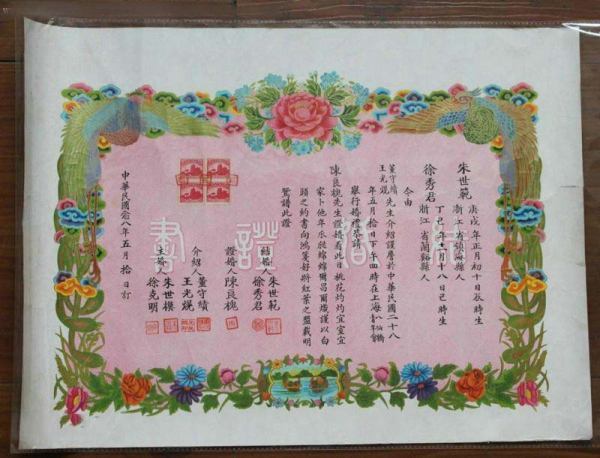 結婚證書
朱世範
浙江省鎮海縣人
庚戌年正月初十日辰時生
徐秀君
浙江省蘭谿縣人
丁巳年十一月十八日巳時生
今由
董守績
王光焜
先生介紹謹詹於中華民國二十八
年五月拾日下午四時在上海
舉行婚禮恭請
陳良槐先生證婚看此日桃花灼灼宜室宜
家卜他年瓜瓞緜緜爾昌爾熾謹以白
頭之約書向鴻箋好將紅葉之盟載明
鴛譜此證
結婚人
朱世範
徐秀君
證婚人陳良槐
介紹人
董守績
王光焜
主婚人
朱世襆
徐克明
中華民國念八年五月拾日訂